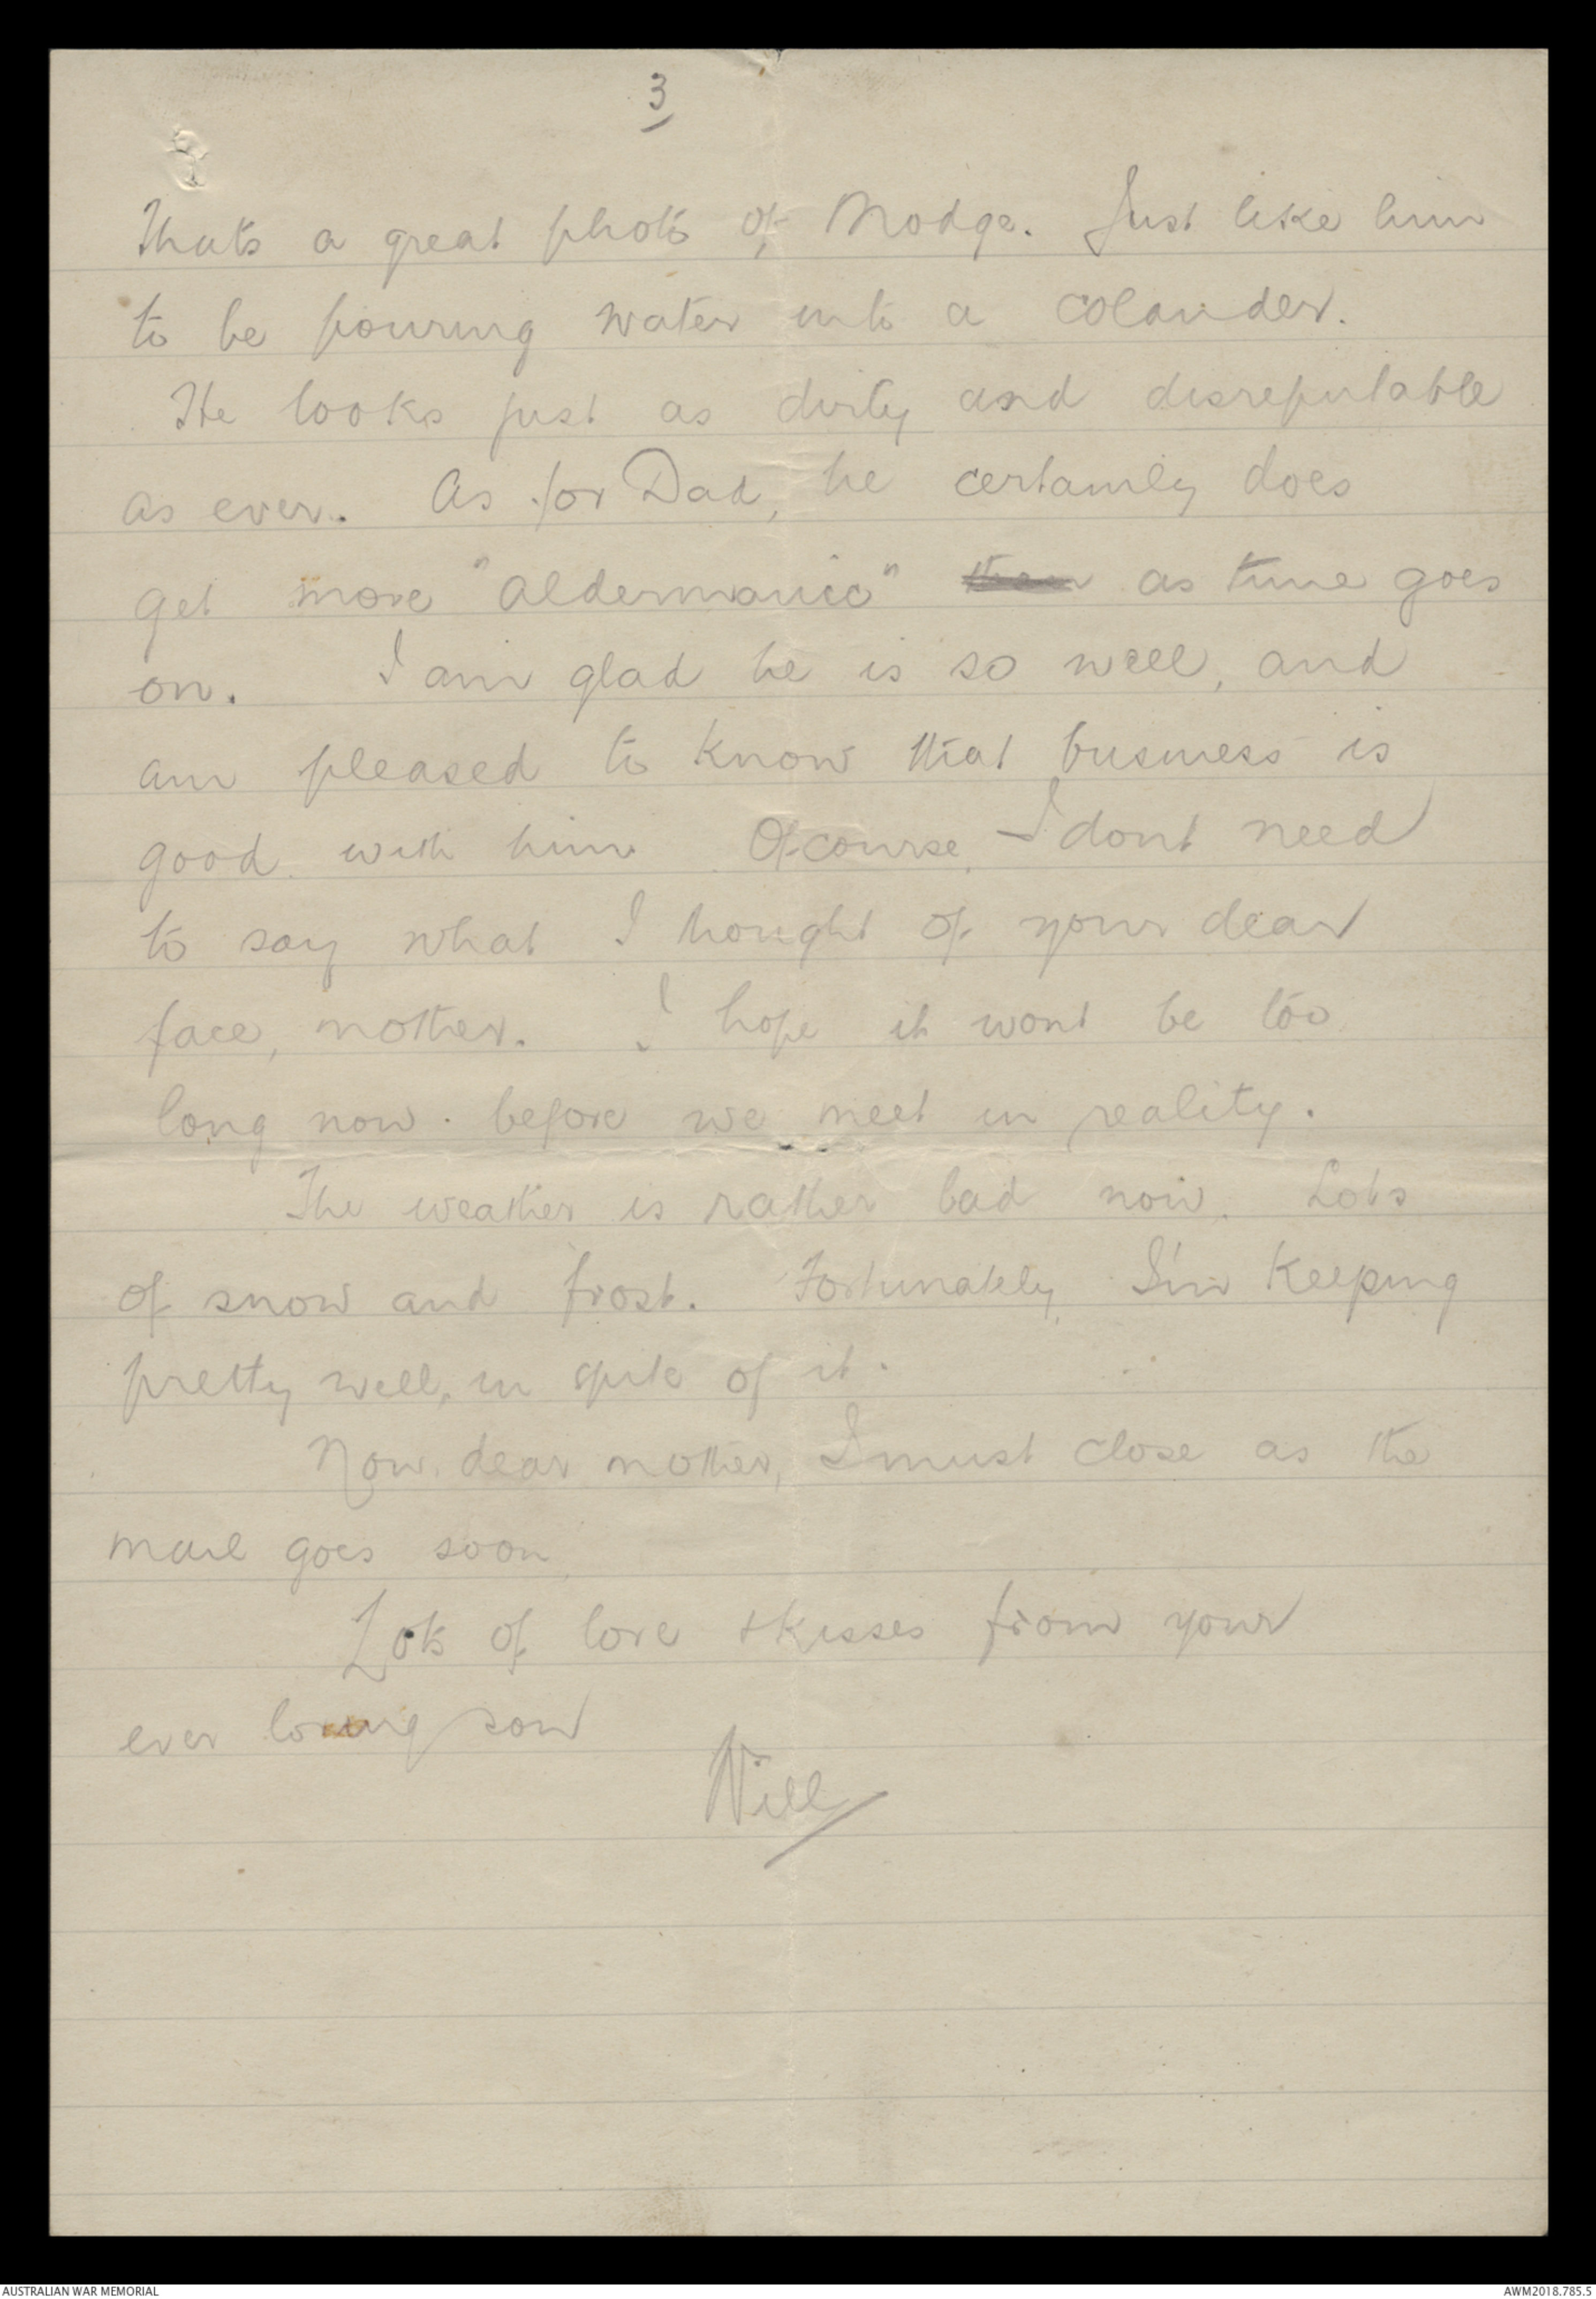 3
Thats a great photo of Modge. Just like him
to be pouring water into a colander.
He looks just as dirty and disreputable
as ever. As for Dad, he certainly does
get more "Aldermanic" as time goes
on. I am glad he is so well, and
am pleased to know that business is
good with him Of course, I dont need
to say what I thought of your dear
face, mother. I hope it wont be too
long now. before we meet in reality.
The weather is rather bad now. Lots
of snow and frost. Fortunately, I'm keeping
pretty well, in spite of it.
Now, dear mother, I must close as the
mail goes soon,
Lots of love & kisses from your
ever loving son
Will
AUSTRALIAN WAR MEMORIAL
AWM2018.785.5